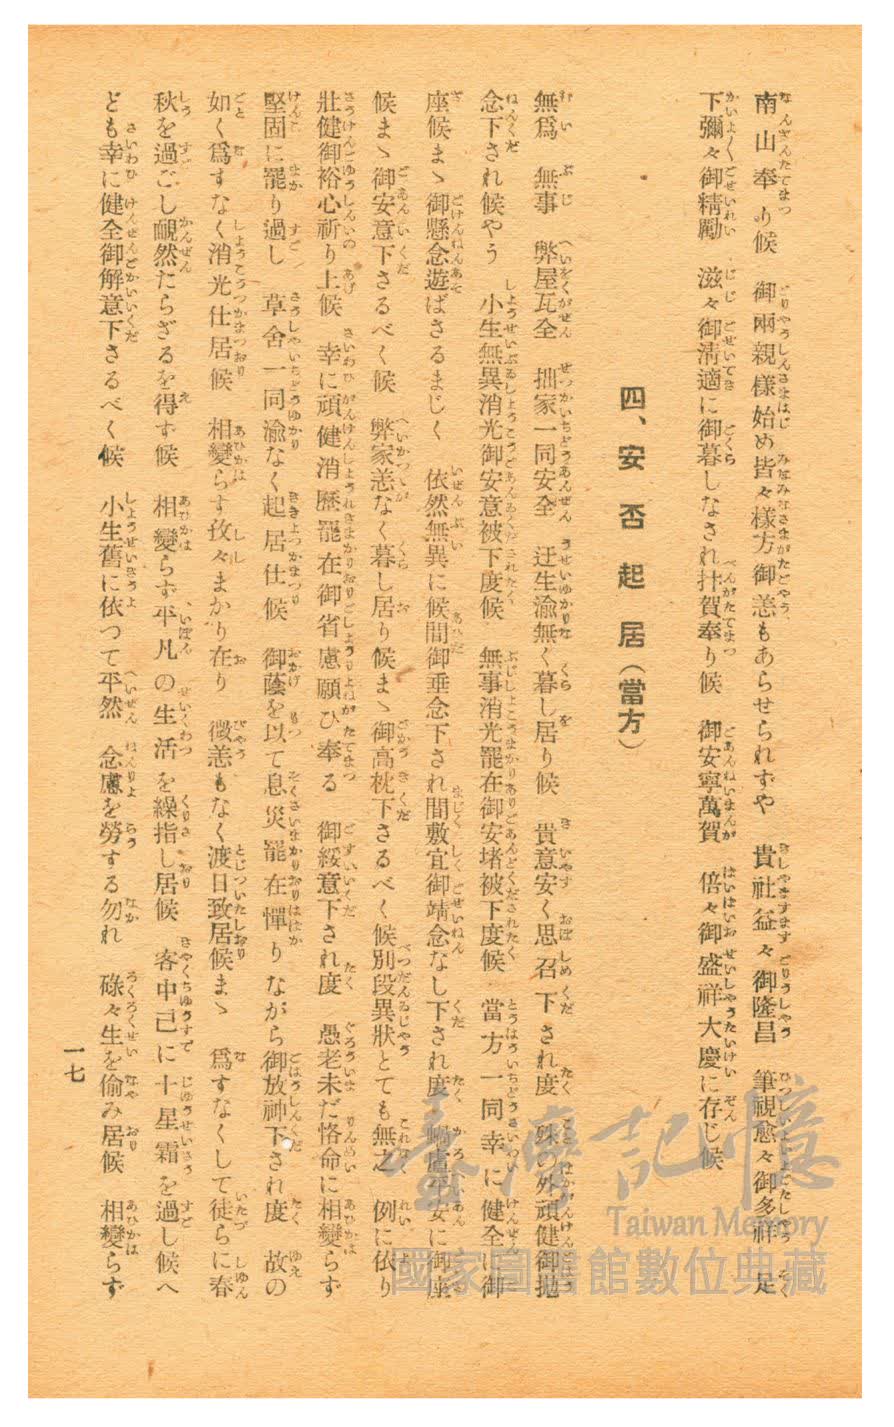 南山奉り候　御兩親樣始め皆々樣方御恙もあらせられずや　貴社益々御隆昌　筆視愈々御多祥　足
下彌々御精勵　滋々御淸適に御暮しなされ抃賀奉り候　御安寧萬賀　倍々御盛祥大慶に存じ候
四、安否起居（當方）
無爲　無事　弊屋瓦全　拙家一同安全　迂生渝無く暮し居り候　貴意安く思召下され度　殊の外頑健御抛
念下され候やう　小生無異消光御安意被下度候　無事消光罷在御安堵被下度候　當方一同幸に健全に御
座候まゝ御懸念遊ばさるまじく　依然無異に候間御垂念下され間敷宜御靖念なし下され度　蝸廬平安に御座
候まゝ御安意下さるべく候　弊家恙なく暮し居り候まゝ御高枕下さるべく候別段異狀とても無之　例に依り
壯健御裕心祈り上候　幸に頑健消歷罷在御省慮願ひ奉る　御綏意下され度　愚老未だ悋命に相變らず
堅固に罷り過し　草舍一同渝なく起居仕候　御蔭を以て息災罷在憚りながら御放神下され度　故の
如く爲すなく消光仕居候　相變らす孜々まかり在り　微恙もなく渡日致居候まゝ　爲すなくして徒らに春
秋を過ごし靦然たらざるを得す候　相變らず平凡の生活を繰指し居候　客中已に十星霜を過し候へ
ども幸に健全御解意下さるべく候　小生舊に依つて平然　念慮を勞する勿れ　碌々生を偷み居候　相變らず
一七
臺灣記憶
Taiwan Memory
國家圖書館數位典藏